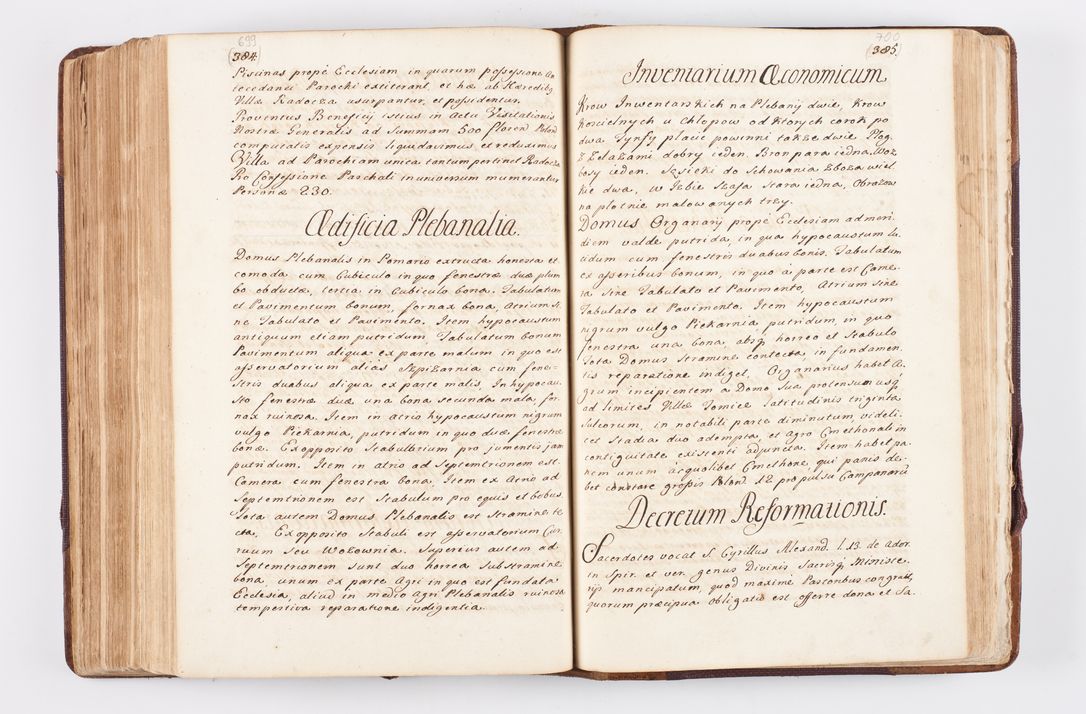 699
(384.
Piscinas propè Ecclesiam in quarum possessione An
tecedanei Parochi extiterant, et hæ ab Hæredibq
Villæ Radocza usurpantur, et possidentur.
Proventus Beneficij istius in Actu Visitationis
Nostræ Generalis ad Summam 500 floren Polon
computatis expensis liquidavimus et reduximus
Villa ad Parochiam unica tantum pertinet Radocza
Pro Confessione Paschali in universum numerantur
Personæ 230.
Ædificia Plebanalia.
Domus Plebanalis in Pomario extructa honesta et
comoda cum Cubiculo in quo fenestræ duæ plum
bo obductæ, tertia in Cubiculo bona. Tabulatum
et Pavimentum bonum fornax bona, Atrium si
ne Tabulato et Pavimento. Item hypocaustum
antiquum etiam putridum, Tabulatum bonum
Pavimentum aliqua ex parte malum in quo est
asservatorium aliàs Szpiżarnia cum fene-
stris duabus aliqua ex parte malis, In hypocau
sto fenestræ duæ una bona secunda mala, for
nax ruinosa. Item in atrio hypocaustum nigrum
vulgo Piekarnia, putridum in quo duæ fenestræ
bonæ. Ex opposito Stabulatium pro jumentis jam
putridum. Item in atrio ad Septemtrionem est
Camera cum fenestra bona. Item ex Atrio ad
Septemtrionem est Stabulum pro equis et bobus.
Tota autem Domus Plebanalis est Stramine te
cta, Ex opposito Stabuli est asservatorium Cur
ruum Seu Wozownia. Superius autem ad
Septemtrionem sunt duo horrea Substramine
bona, unum ex parte Agri in quo est fundata
Ecclesia, aliud in medio agri Plebanalis ruinosa
tempestiva reparatione indigentia.
700
(385.
Inventarium Œconomicum
Krow Inwentarskich na Plebanij dwie, Krow
Koscielnych u Chłopow od ktorych corok po
dwa Tynfy płacic powinni także dwie Pług
z Zelazami dobry ieden. Bron para iedna, Woz
bosy ieden. Szsieki do Schowania Zboza wiel
kie dwa, w Izbie Szafa Stara iedna, Obrazow
na płotnie malowanych trzy.
Domus Organarij propè Ecclesiam ad meri-
diem valde putrida, in qua hypocaustum lu
cidum cum fenestris duabus bonis. Tabulatum
ex asseribus bonum, in quo à parte est Came-
ra sine Tabulato et Pavimento, Atrium sine
Tabulato et Pavimento. Item hypocaustum
nigrum vulgo Piekarnia putridum, in quo
fenestra una bona, absq horreo et Stabulo
Tota Domus Stramine contecta, in fundamen-
tis reparatione indiget, Organarius habet A-
grum incipientem a Domo sua protensum usq
ad limites Villæ Tomice latitudinis triginta
Sulcorum, in notabili parte diminutum videli-
cet Stadia duo adempta, et Agro Cmethonali in
contiguitate existenti adjuncta. Item habet pa-
nem unum à quolibet Cmethone, qui panis de-
bet constare grossis Polon 12 pro pulsu Campanarũ
Decretum Reformationis.
Sacerdotes vocat S. Cyrillus Alexand. l. 13. de Ador.
in Spir. et ver. genus Divinis Sacrisq Ministe-
rijs mancipatum, quod maximè Pastoribus congruit,
quorum præcipua Obligatio est offerre dona et Sa-